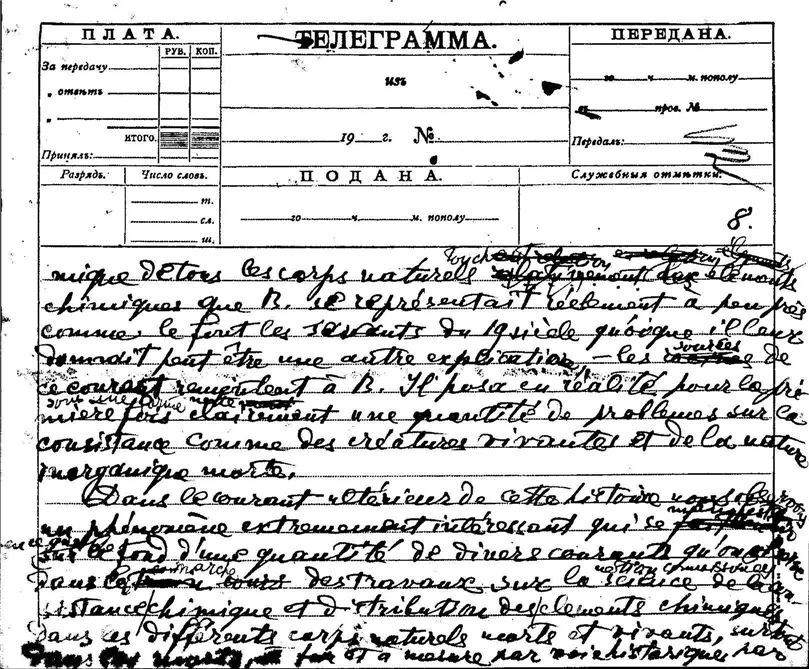 ПЛАТА.
РУБ. КОП.
За передачу
„ отвѣтъ
„
ИТОГО.
Принялъ:
ТЕЛЕГРАММА.
изъ
19 г. №
ПЕРЕДАНА.
го ч. м. пополу
въ пров. №
Передалъ:
Разрядъ. Число словъ.
т.
сл.
ш.
ПОДАНА.
го ч. м. пополу
Служебныя отмѣтки.
8.
mique de tous les corps naturels éléments
chimiques que B. se représentait réelement à peu près
comme le font les savants du 19 siècle quoique il leur
donnait peut être une autre explication – les sources de
ce courant remontent à B. Il posa en réalité pour la pre
sous une forme nette
mière fois clairement une quantité de problemes sur la
consistance comme des créatures vivantes et de la nature
inorganique morte.
Dans le courant ultérieur de cette histoire nous observons
un phénomène extremement intéressant qui se
sur le fond d'une quantité de divers courants qu'on
dans la marche des travaux sur la science de la con-
sistance chimique et distribution des elements chimiques
dans les différents corps naturels morts et vivants, surtout
dans les morts, fur et à mesure par voie historique, par